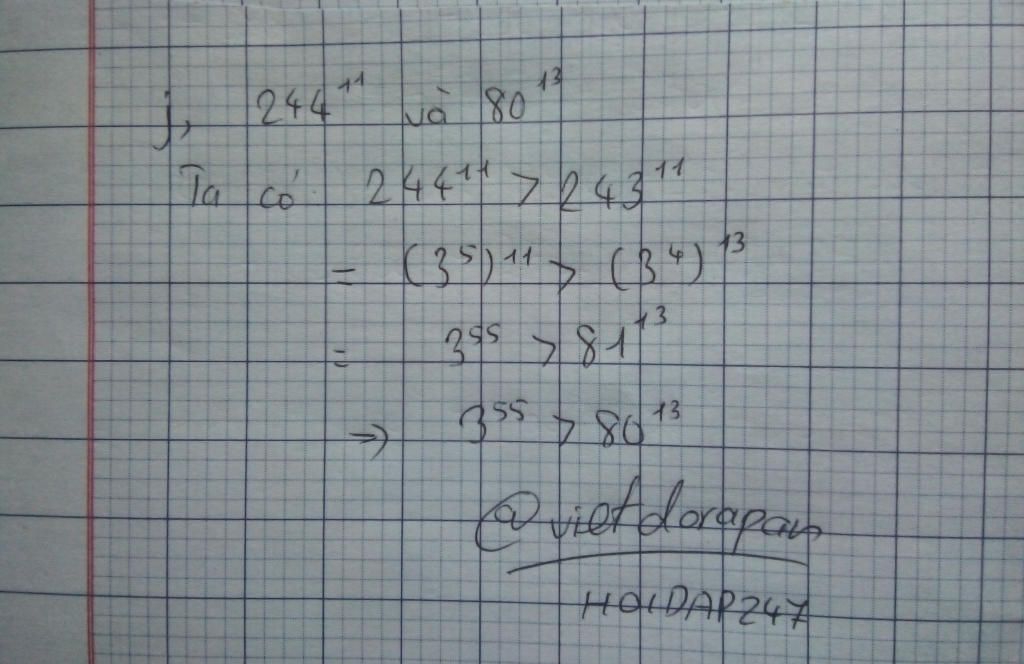 j, 244¹¹ và 80¹³
Ta có 244¹¹ > 243¹¹
= (3⁵)¹¹ > (3⁴)¹³
= 3⁵⁵ > 81¹³
=> 3⁵⁵ > 80¹³
@vietdorapan
HOIDAP247